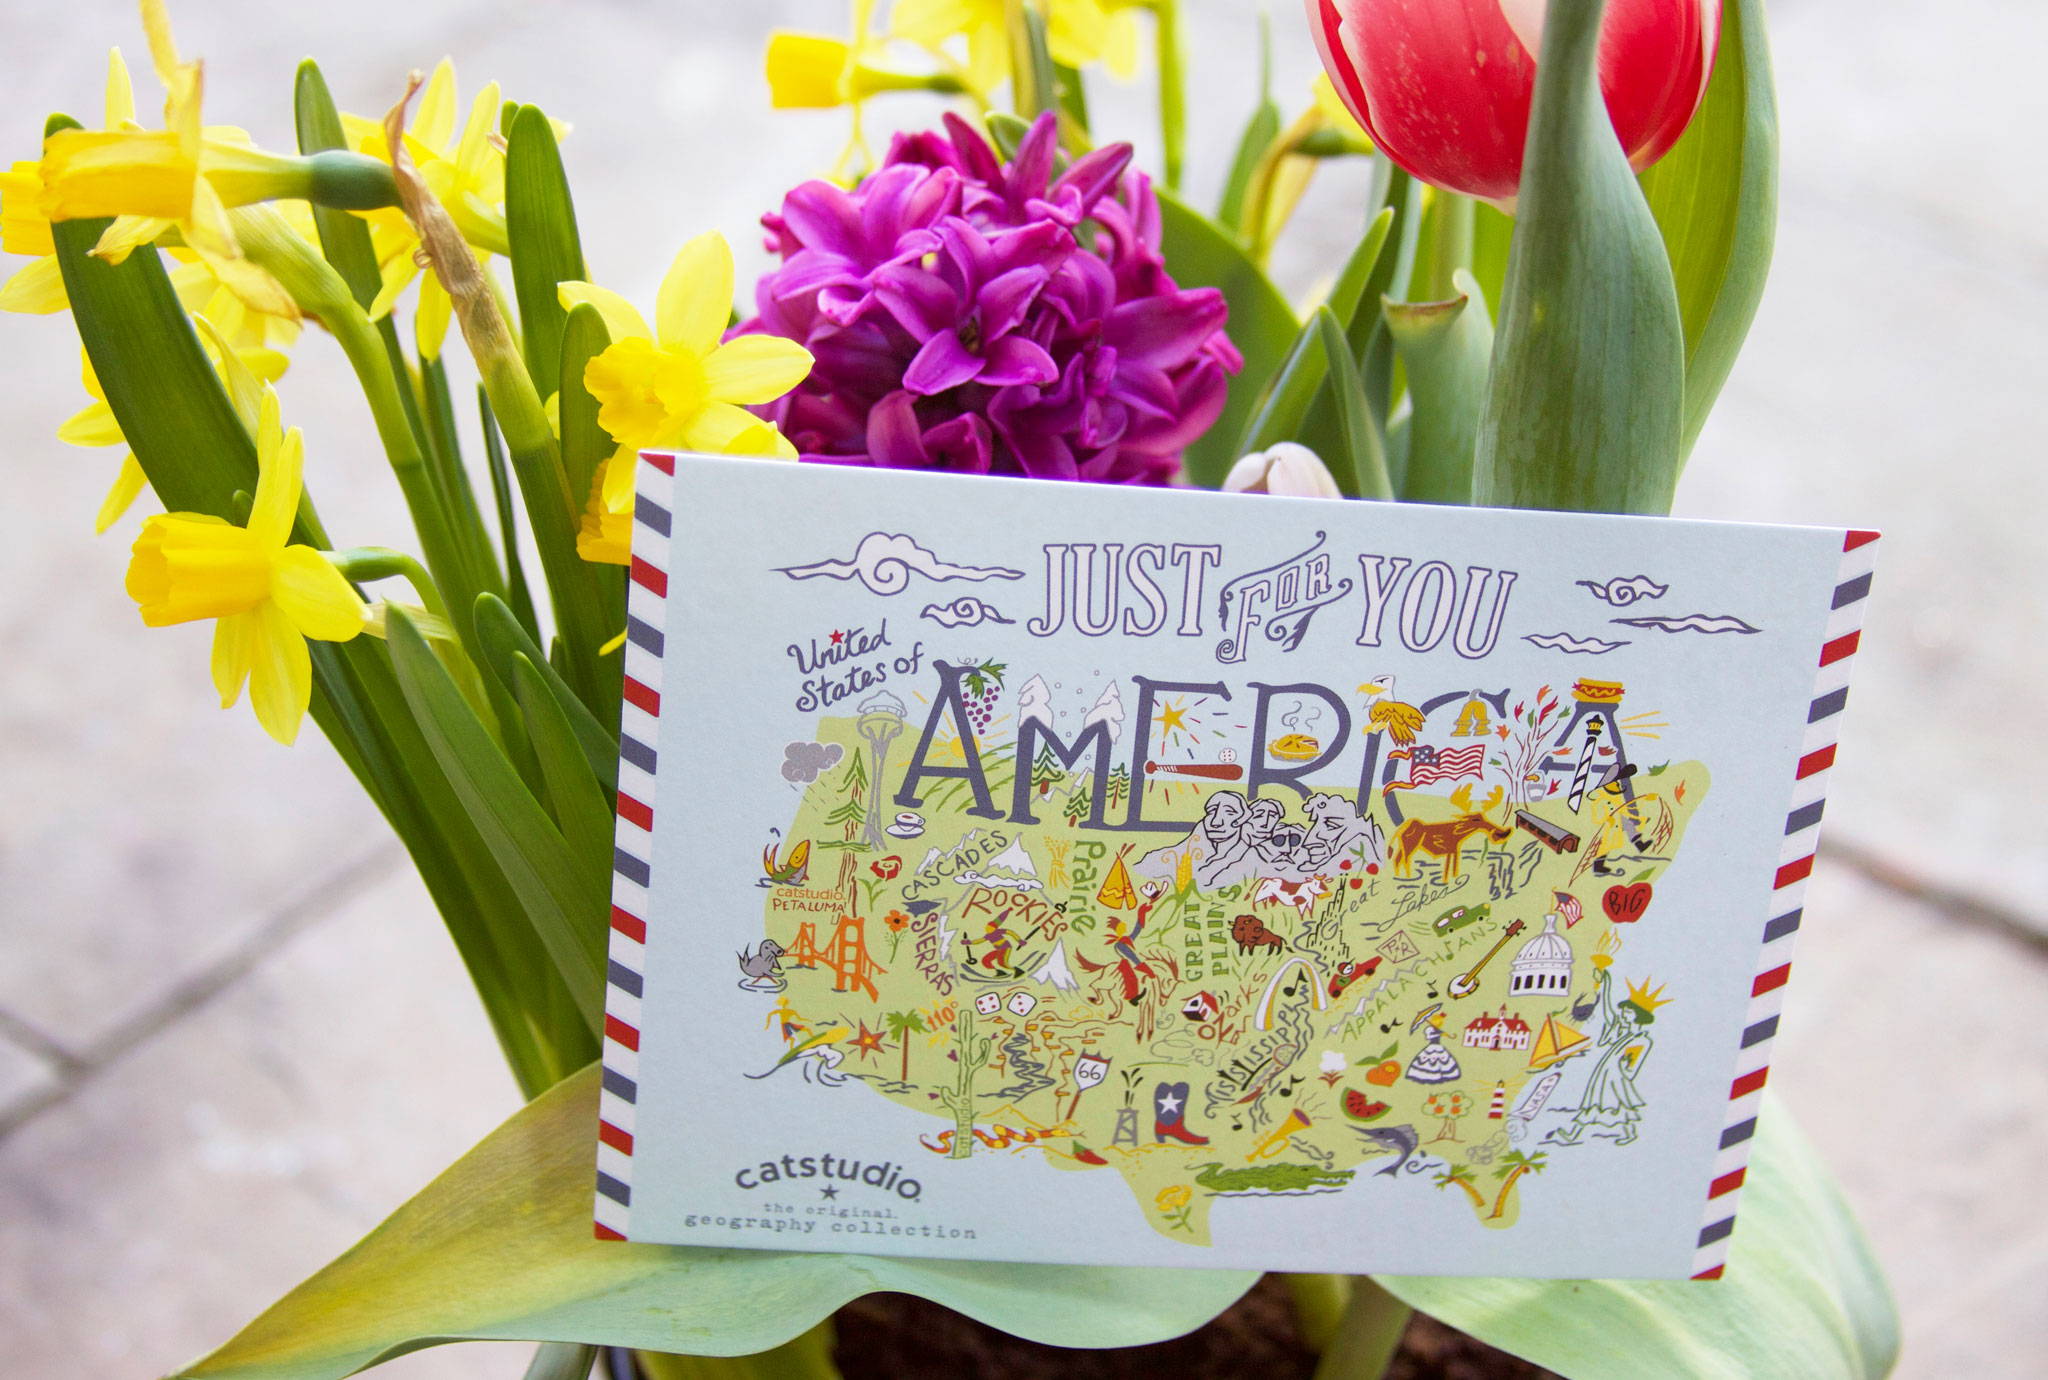 JUST FOR YOU
United
States of
AMERICA
CASCADES
Prairie
catstudio
PETALUMA
ROCKIES
SIERRAS
GREAT
PLAINS
Great Lakes
BIG
RR
APPALACHIANS
Ozarks
OK
110°
MISSISSIPPI
66
NASA
catstudio
catstudio
the original
geography collection